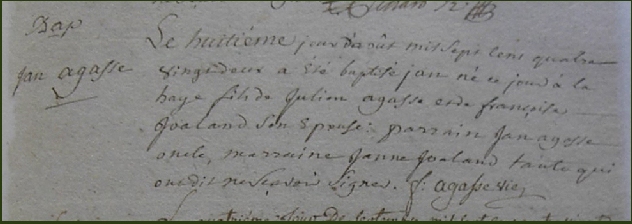 Bap
jan agasse
Le huitiéme jour daoût mil sept cens quatre
vingt deux a été baptisé jan né ce jour à la
haye fils de Julien agasse et de françoise
Joaland son épouse. parrain jan agasse
oncle, marraine Janne Joaland tante qui
ont dit ne sçavoir signer. f: agasse
quatriéme jour de septembre mil sept